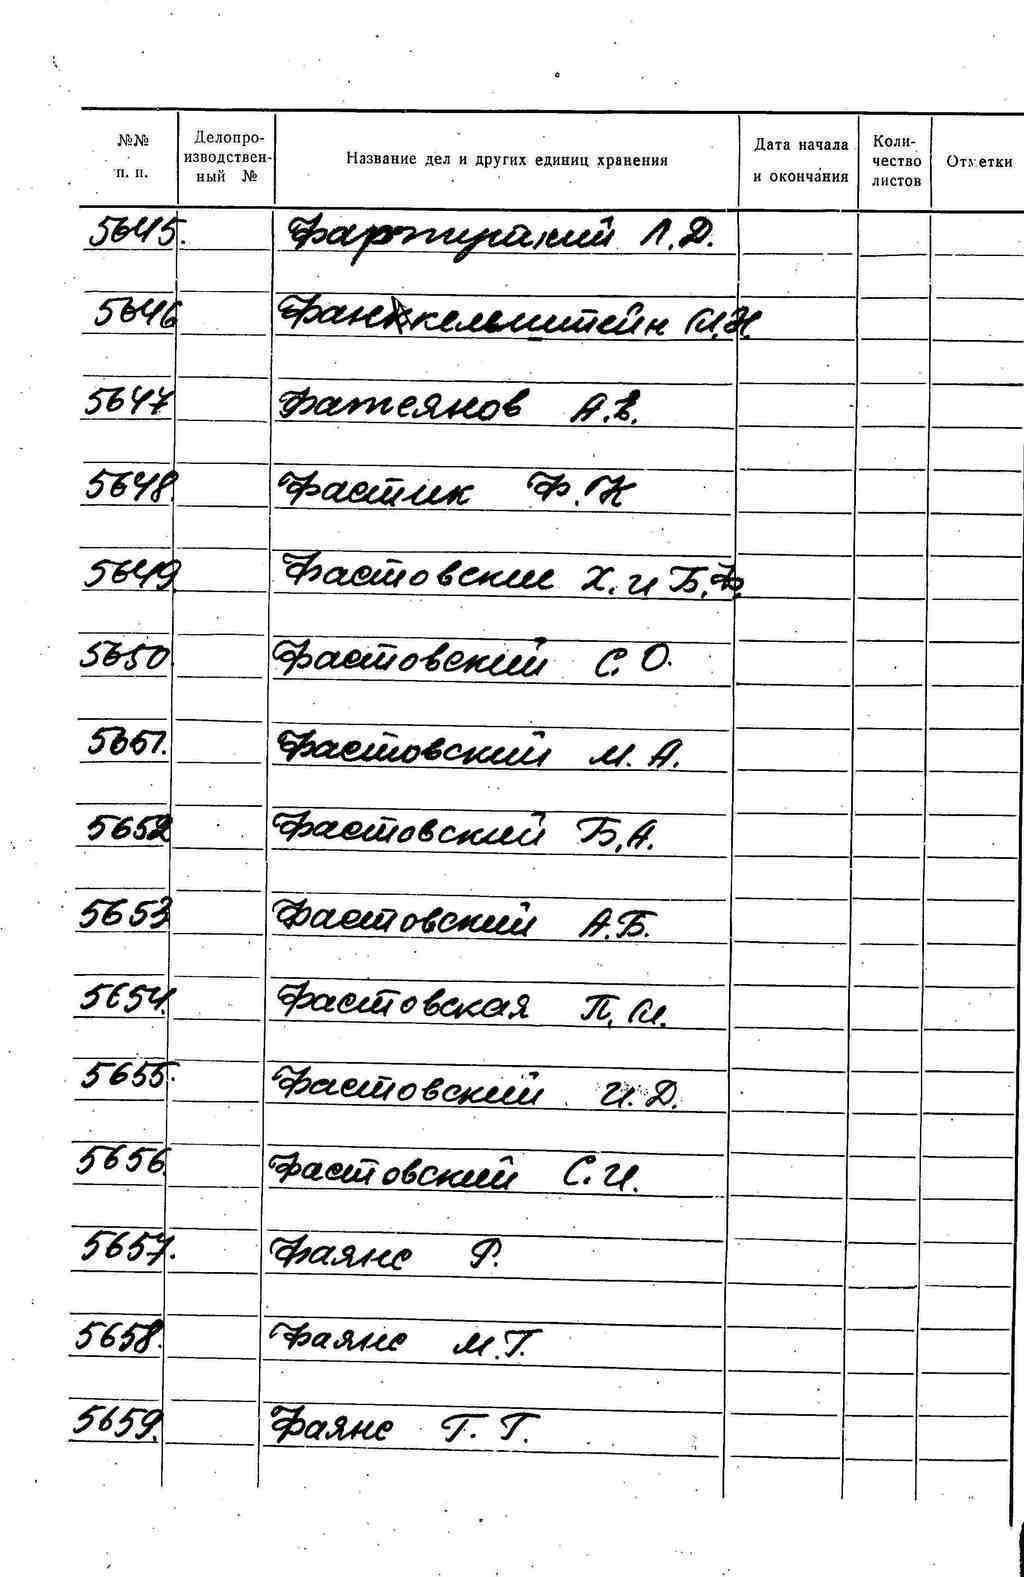 №№ п. п. Делопро-изводствен-ный № Название дел и других единиц хранения Дата начала и окончания Коли-чество листов Отметки
5645. Л.Д.
5646 И.И.
5647 Фатеянов А.В.
5648. Фастик Ф.К
5649. Фастовские Х. и Б.Ф.
5650. Фастовский С.О.
5651. Фастовский М.А.
5652 Фастовский Б.А.
5653 Фастовский А.Б.
5654. Фастовская П.И.
5655. Фастовский И.Д.
5656. Фастовский С.И.
5657. Фаянс Р.
5658. Фаянс М.Г.
5659. Фаянс Г.Г.